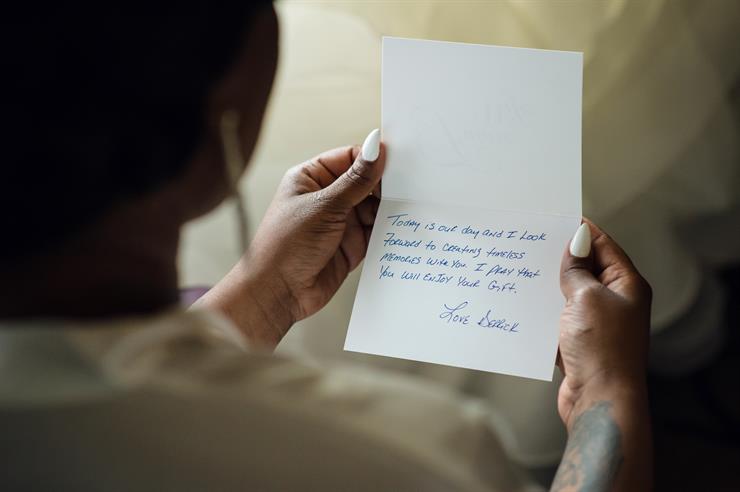 Today is our day and I look
forward to creating timeless
memories with you. I pray that
you will enjoy your gift.
Love Derrick